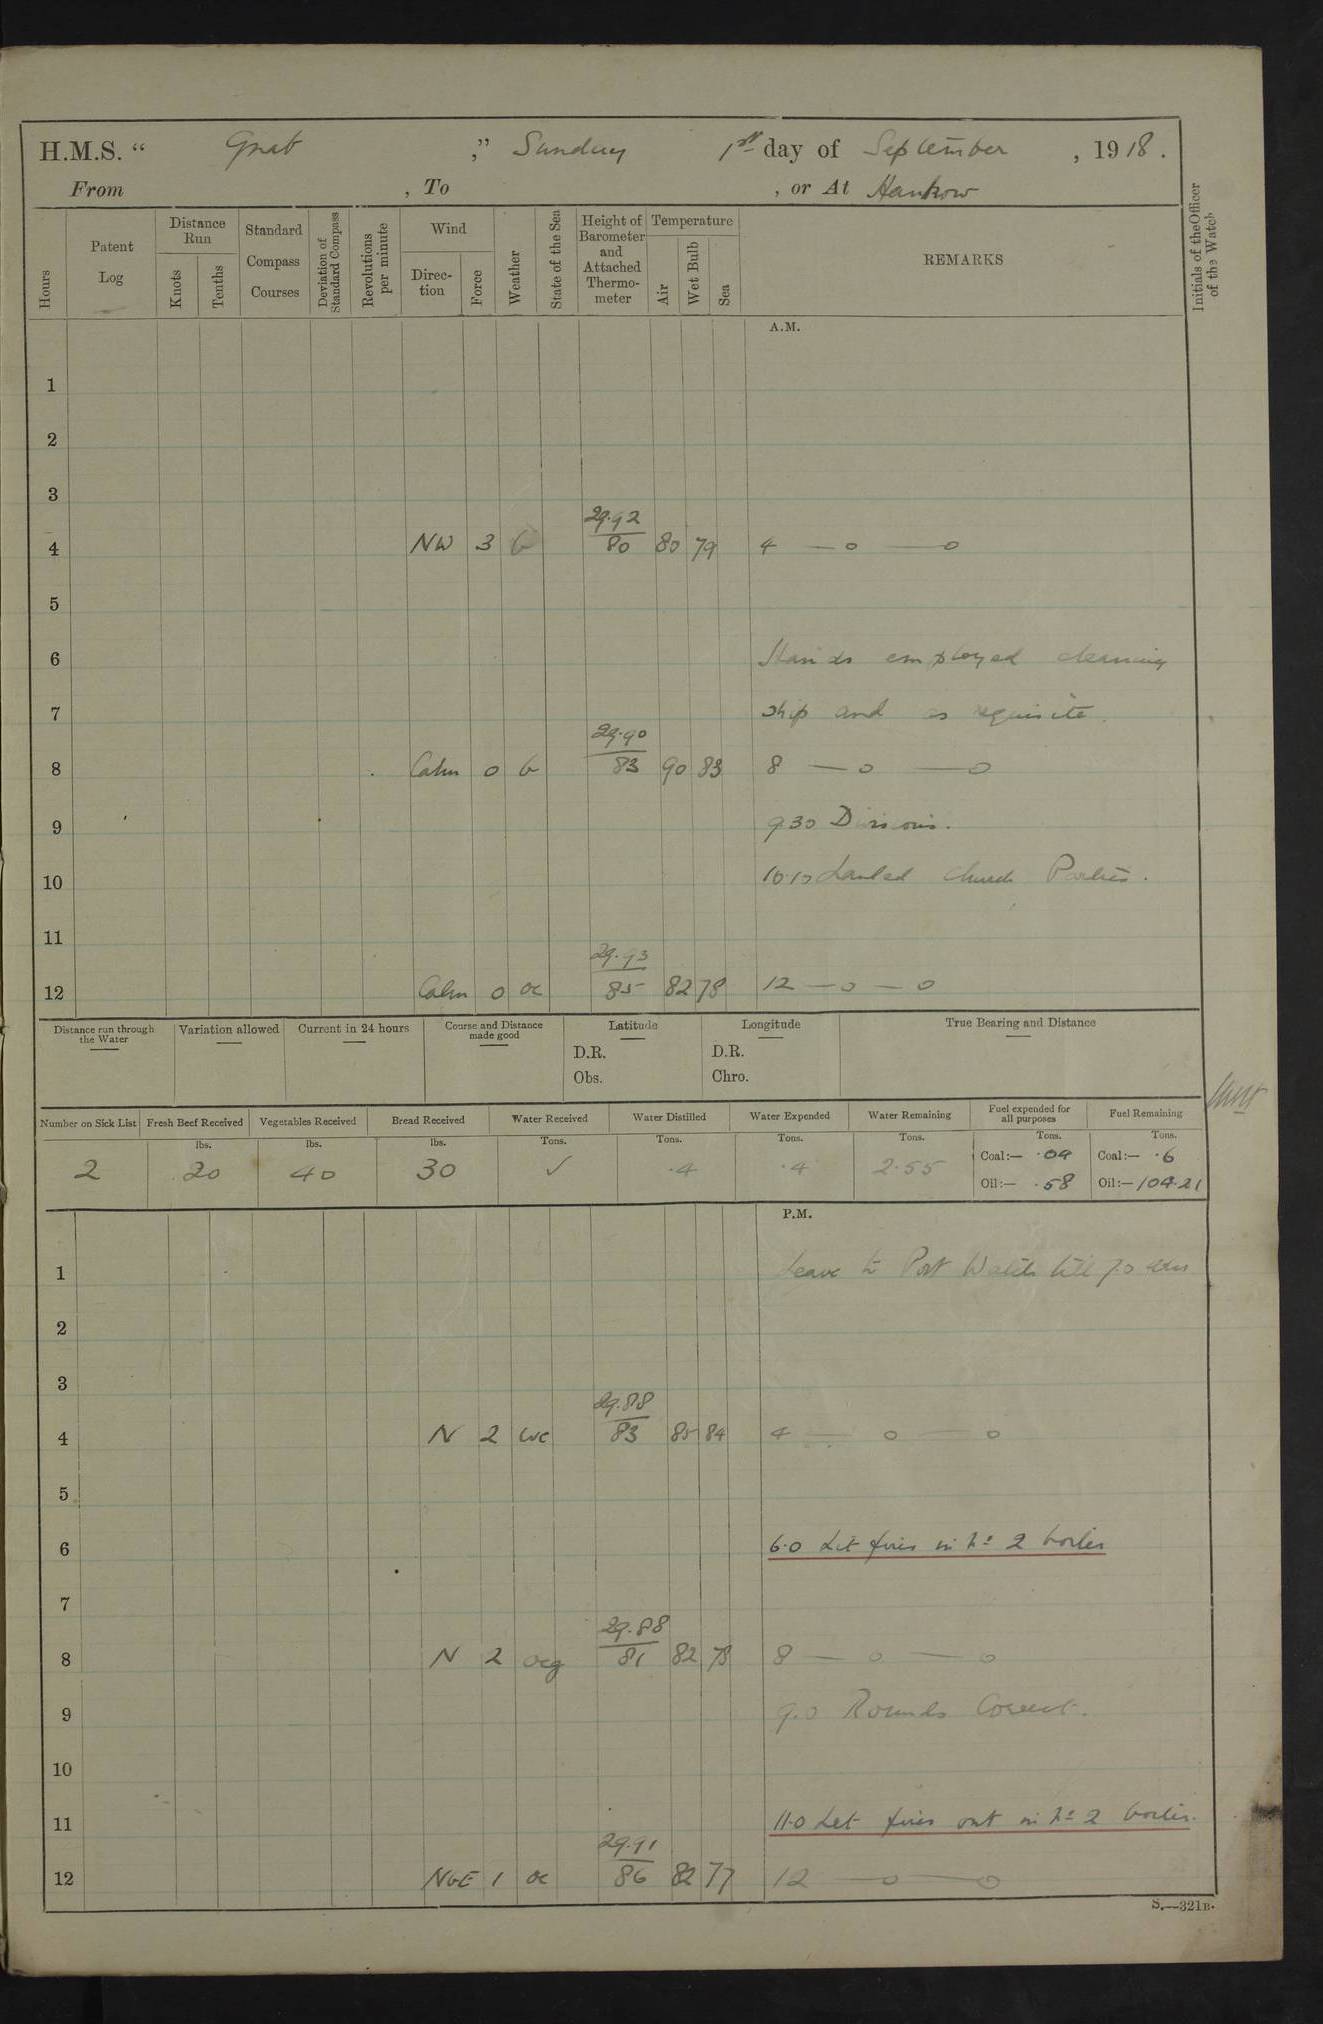 H.M.S. “ Gnat ,” Sunday 1st day of September , 1918.
From , To , or At Hankow
Hours
Patent Log
Distance Run
Knots
Tenths
Standard Compass Courses
Deviation of Standard Compass
Revolutions per minute
Wind
Direction
Force
Weather
State of the Sea
Height of Barometer and Attached Thermometer
Temperature
Air
Wet Bulb
Sea
REMARKS
Initials of the Officer of the Watch
A.M.
1
2
3
29.92
4 NW 3 b 80 80 79 4 — o — o
5
6 Hands employed cleaning
7 ship and as requisite.
29.90
8 Calm 0 b 83 90 83 8 — o — o
9 9.30 Divisions.
10 10.10 Landed Church Parties.
11
29.93
12 Calm 0 oc 85 82 78 12 — o — o
Distance run through the Water
Variation allowed
Current in 24 hours
Course and Distance made good
Latitude
D.R.
Obs.
Longitude
D.R.
Chro.
True Bearing and Distance
Number on Sick List Fresh Beef Received Vegetables Received Bread Received Water Received Water Distilled Water Expended Water Remaining Fuel expended for all purposes Fuel Remaining
lbs. lbs. lbs. Tons. Tons. Tons. Tons. Tons. Tons.
2 20 40 30 ✓ .4 .4 2.55
Coal:— .04 Coal:— .6
Oil:— .58 Oil:— 104.21
P.M.
1 Leave to Port Watch till 7.0
2
3
29.88
4 N 2 83 85 84 4 — o — o
5
6 6.0 Lit fires in No 2 boiler
7
29.88
8 N 2 ocg 81 82 78 8 — o — o
9 9.0 Rounds Correct.
10
11 11.0 Let fires out in No 2 boiler.
29.91
12 NbE 1 oc 86 82 77 12 — o — o
S.—321B.